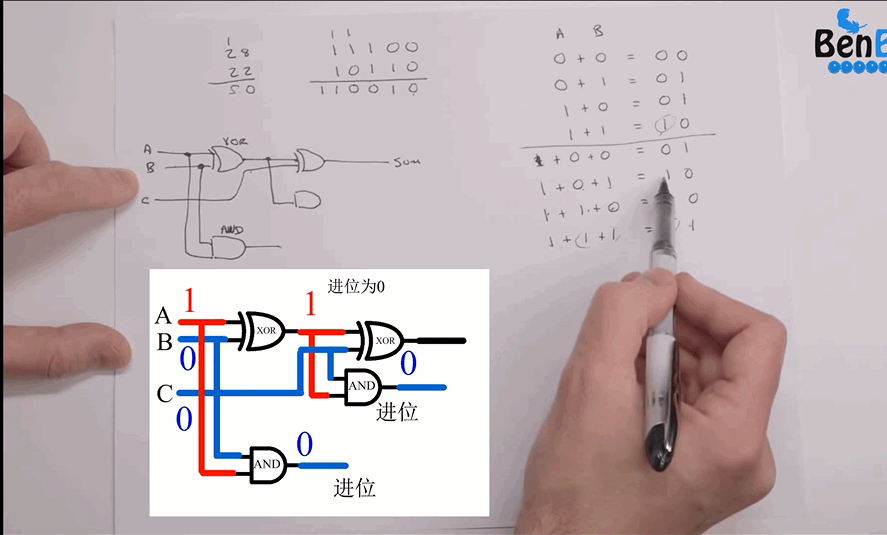 1
28
22
50
1 1
11100
10110
110010
A B
0 + 0 = 0 0
0 + 1 = 0 1
1 + 0 = 0 1
1 + 1 = 1 0
1 + 0 + 0 = 0 1
1 + 0 + 1 = 1 0
1 + 1 + 0 = 0
1 + (1 + 1) = 1
BenE
A
B
C
XOR
SUM
AND
进位为0
A 1
B 0
C 0
XOR
1
XOR
0
AND
进位
AND
0
进位